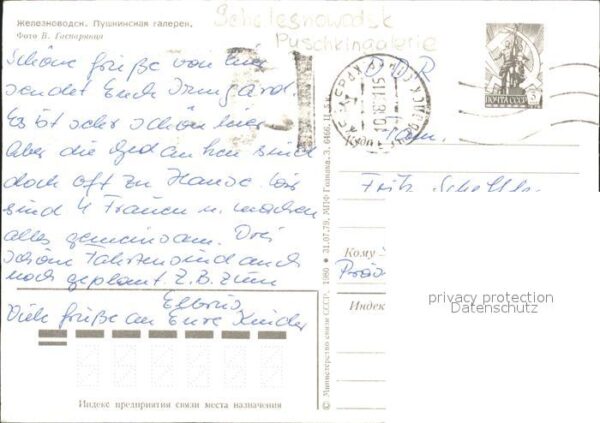 Железноводск. Пушкинская галерея.
Фото В. Гаспарянца
Schelesnowodsk
Puschkingalerie
Schöne Grüße von hier
sendet Euch Irmgard.
Es ist sehr schön hier
Aber die Gedanken sind
doch oft zu Hause. Wir
sind 4 Frauen u. machen
alles gemeinsam. Drei
schöne Fahrten sind auch
noch geplant. Z.B. zum
Elbrus
Viele Grüße an Eure Kinder
Индекс предприятия связи места назначения
© Министерство связи СССР. 1980 • 31.07.79. МПФ Гознака. З. 6466. Ц. 3 к.
DDR
ПОЧТА СССР
Fam.
Fritz
Кому
Индекс
privacy protection
Datenschutz